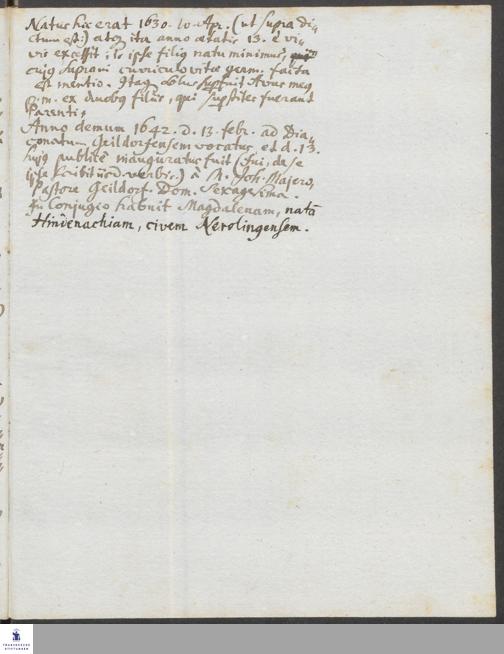 Natus hic erat 1630. 10 Apr. (ut supra di-
ctum est:) atq; ita anno ætatis 13. è vi-
vis excessit; is ipse filiq natu minimus,
cujq supra in curriculo vitæ germ. facta
est mentio. Itaq Avus meq
p.m. ex duobq filiis, qui superstites fuerant
Parenti,
Anno demum 1642. d. 13. febr. ad Dia-
conatum Geildorfensem vocatus, et d. 13.
hujq publicè inauguratus fuit (fui, de se
ipse scribit verbis.) à M. Joh. Majero,
Pastore Geildorf. Dom. Sexagesima.
In Conjugio habuit Magdalenam, natā
Hinderachiam, civem Nerolingensem.
FRANCKESCHE
STIFTUNGEN